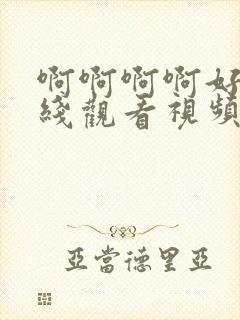 啊啊啊啊好
綫觀看視頻
亞當德里亞